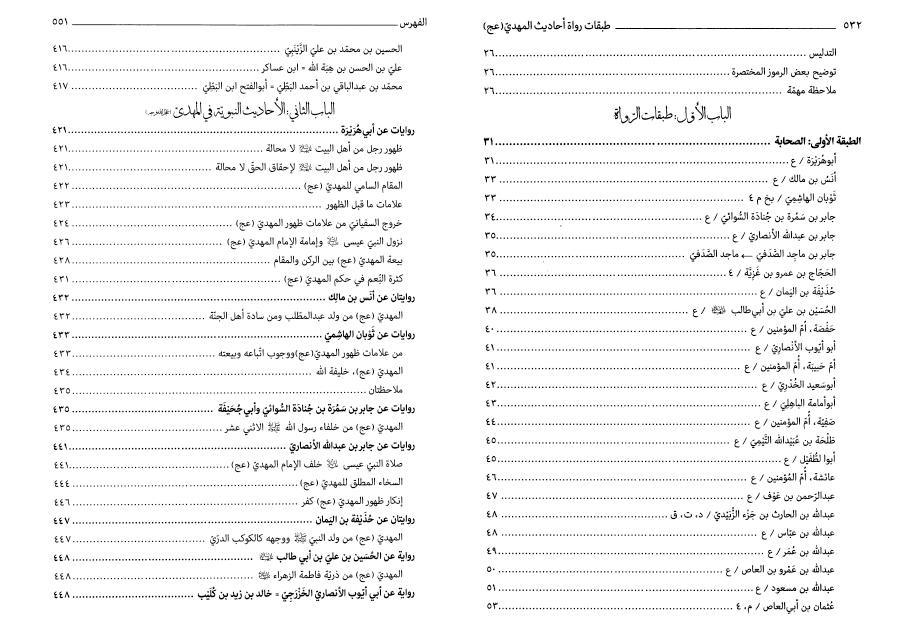 ٥٣٢ طبقات رواة أحاديث المهديّ(عج)
التدليس ٢٦
توضيح بعض الرموز المختصرة ٢٦
ملاحظة مهمّة ٢٦
الباب الأوّل: طبقات الرّواة
الطبقة الأولى: الصحابة ٣١
أبوهُرَيْرَة / ع ٣١
أنَسُ بن مالك / ع ٣٣
ثَوْبان الهاشِمِيّ / بخ م ٤ ٣٣
جابر بن سَمُرة بن جُنادَة السُّوائيّ / ع ٣٤
جابر بن عبدالله الأنصاريّ / ع ٣٥
جابر بن ماجِد الصَّدَفيّ ← ماجد الصَّدَفيّ ٣٥
الحَجّاج بن عمرو بن غَزِيَّة / ٤ ٣٦
حُذَيْفَة بن اليَمان / ع ٣٦
الحُسَيْن بن عليّ بن أبي‌طالب / ع ٣٨
حَفْصَة، أُمّ المؤمنين / ع ٤٠
أبو أيّوب الأنْصاريّ / ع ٤١
أمّ حَبيبَة، أُمّ المؤمنين / ع ٤١
أبوسَعيد الخُدْرِيّ / ع ٤٢
أبوأمامة الباهِليّ / ع ٤٣
صَفِيّة، أُمّ المؤمنين / ع ٤٤
طَلْحَة بن عُبَيْدالله التَّيْمِيّ / ع ٤٥
أبوا لطُّفَيْل / ع ٤٥
عائشة، أُمّ المُؤمنين / ع ٤٦
عبدالرّحمن بن عَوْف / ع ٤٧
عبدالله بن الحارث بن جَزْء الزُّبَيْديّ / د، ت، ق ٤٨
عبدالله بن عبّاس / ع ٤٨
عبدالله بن عُمَر / ع ٤٩
عبدالله بن عَمْرو بن العاص / ع ٥٠
عبدالله بن مسعود / ع ٥١
عُثمان بن أبي‌العاص / م، ٤ ٥٣
الفهرس ٥٥١
الحسين بن محمّد بن عليّ الزَّيْنَبيّ ٤١٦
عليّ بن الحسن بن هِبَة الله = ابن عساكر ٤١٦
محمّد بن عبدالباقي بن أحمد البَطّيّ = أبوالفتح ابن البَطّيّ ٤١٧
الباب الثاني: الأحاديث النبويّة في المهديّ
روايات عن أبي‌هُرَيْرَة ٤٢١
ظهور رجل من أهل البيت لا محالة ٤٢١
ظهور رجل من أهل البيت لإحقاق الحقّ لا محالة ٤٢١
المقام السامي للمهديّ (عج) ٤٢٢
علامات ما قبل الظهور ٤٢٣
خروج السفيانيّ من علامات ظهور المهديّ (عج) ٤٢٤
نزول النبيّ عيسى وإمامة الإمام المهديّ (عج) ٤٢٦
بيعة المهديّ (عج) بين الركن والمقام ٤٢٨
كثرة النِّعم في حكم المهديّ (عج) ٤٣١
روايتان عن أنَس بن مالِك ٤٣٢
المهديّ (عج) من ولد عبدالمطّلب ومن سادة أهل الجنّة ٤٣٢
روايات عن ثَوْبان الهاشِميّ ٤٣٣
من علامات ظهور المهديّ(عج)ووجوب اتّباعه وبيعته ٤٣٣
المهديّ (عج)، خليفة الله ٤٣٤
ملاحظتان ٤٣٥
روايات عن جابر بن سَمُرَة بن جُنادَة السُّوائيّ وأبي جُحَيْفَة ٤٣٥
المهديّ (عج) من خلفاء رسول الله ﷺ الاثني عشر ٤٣٥
روايات عن جابر بن عبدالله الأنصاريّ ٤٤١
صلاة النبيّ عيسى خلف الإمام المهديّ (عج) ٤٤١
السخاء المطلق للمهديّ (عج) ٤٤٤
إنكار ظهور المهديّ (عج) كفر ٤٤٦
روايتان عن حُذَيْفَة بن اليَمان ٤٤٧
المهديّ (عج) من ولد النبيّ ﷺ ووجهه كالكوكب الدرّيّ ٤٤٧
رواية عن الحُسَين بن عليّ بن أبي طالب ٤٤٨
المهديّ (عج) من ذريّة فاطمة الزهراء ٤٤٨
رواية عن أبي أيّوب الأنصاريّ الخَزْرَجيّ = خالد بن زيد بن كُلَيْب ٤٤٨